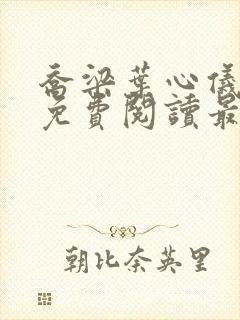 喬梁葉心儀
免費閱讀最
朝比奈英里